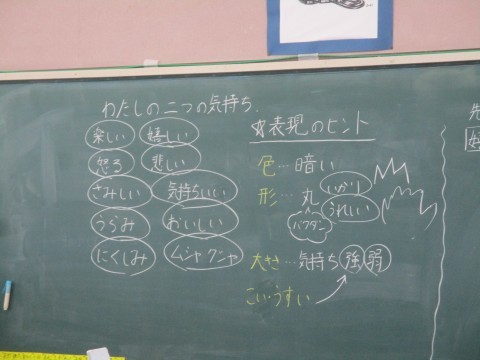 わたしの二つの気持ち
楽しい 嬉しい
怒る 悲しい
さみしい 気持ちいい
うらみ おいしい
にくしみ ムシャクシャ
☆表現のヒント
色…暗い
形…丸 いかり
うれしい
バクダン
大きさ…気持ち強弱
こい、うすい
先